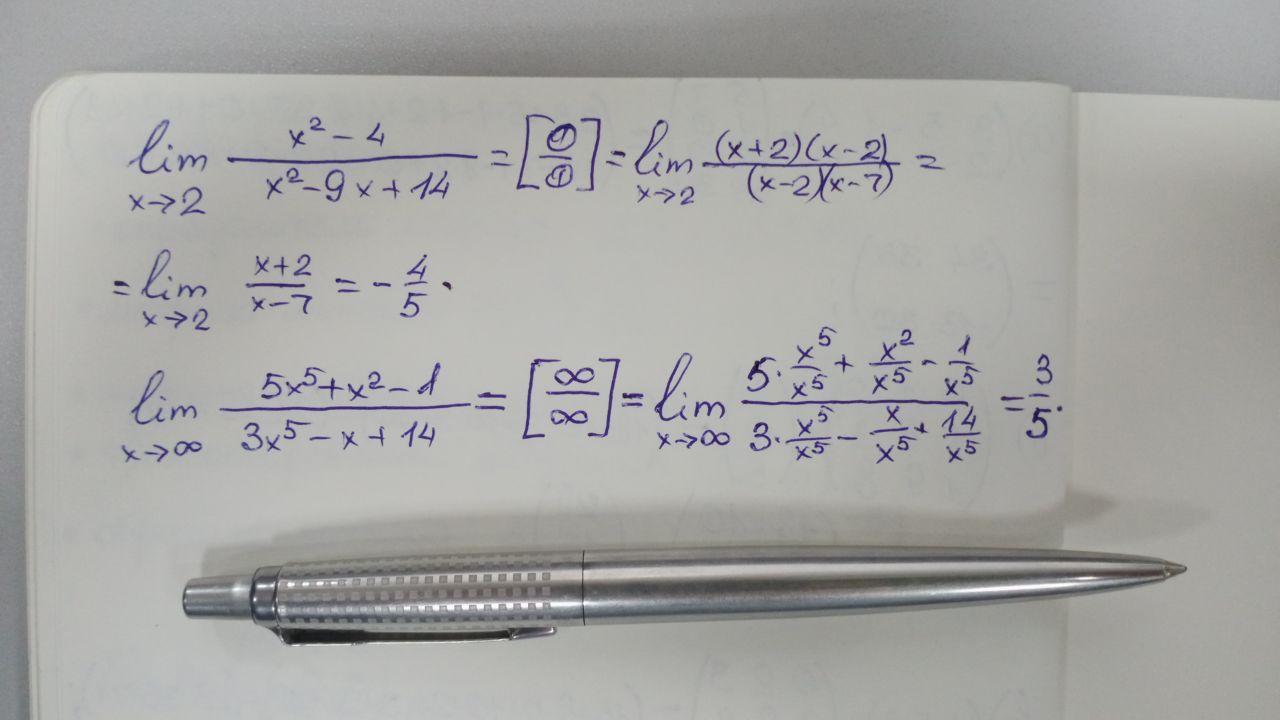 lim x→2 (x² - 4)/(x² - 9x + 14) = [0/0] = lim x→2 ((x+2)(x-2))/((x-2)(x-7)) =
= lim x→2 (x+2)/(x-7) = - 4/5.
lim x→∞ (5x⁵ + x² - 1)/(3x⁵ - x + 14) = [∞/∞] = lim x→∞ (5·x⁵/x⁵ + x²/x⁵ - 1/x⁵)/(3·x⁵/x⁵ - x/x⁵ + 14/x⁵) = 3/5.